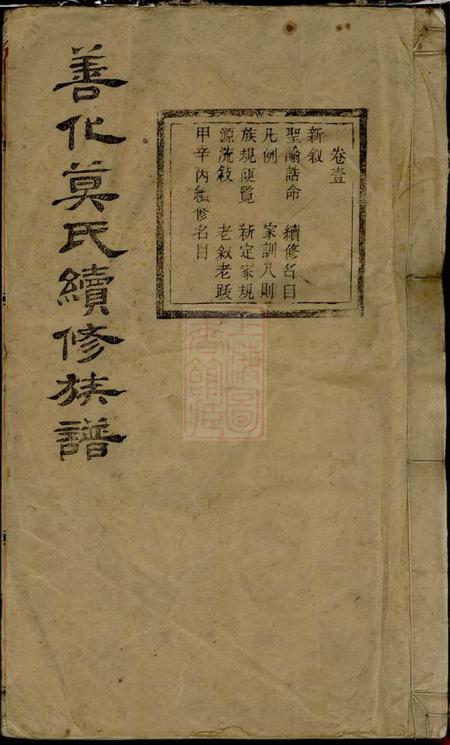 善化莫氏續修族譜
卷壹
新叙
聖諭誥命 續修名目
凡例 家訓八則
族規便覽 新定家規
源流敍 老叙老跋
甲辛丙續修名目
上海圖書館藏